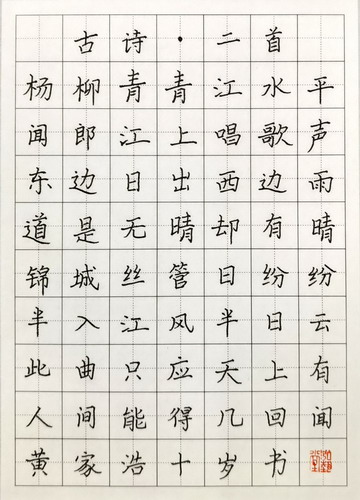 古诗·二首
杨柳青青江水平
闻郎江上唱歌声
东边日出西边雨
道是无晴却有晴
锦城丝管日纷纷
半入江风半日云
此曲只应天上有
人间能得几回闻
黄家浩十岁书